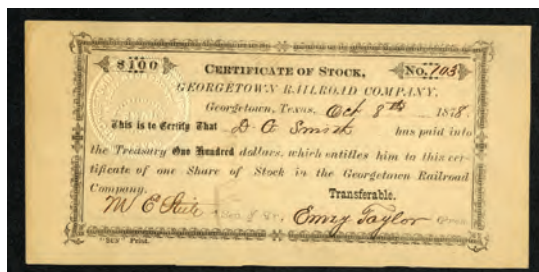 $100 CERTIFICATE OF STOCK, No. 705
GEORGETOWN RAILROAD COMPANY.
Georgetown, Texas, Oct 8th 1878.
This is to Certify That D. G. Smith has paid into
the Treasury One Hundred dollars, which entitles him to this cer-
tificate of one Share of Stock in the Georgetown Railroad
Company. Transferable.
M E Emzy Taylor
Print.